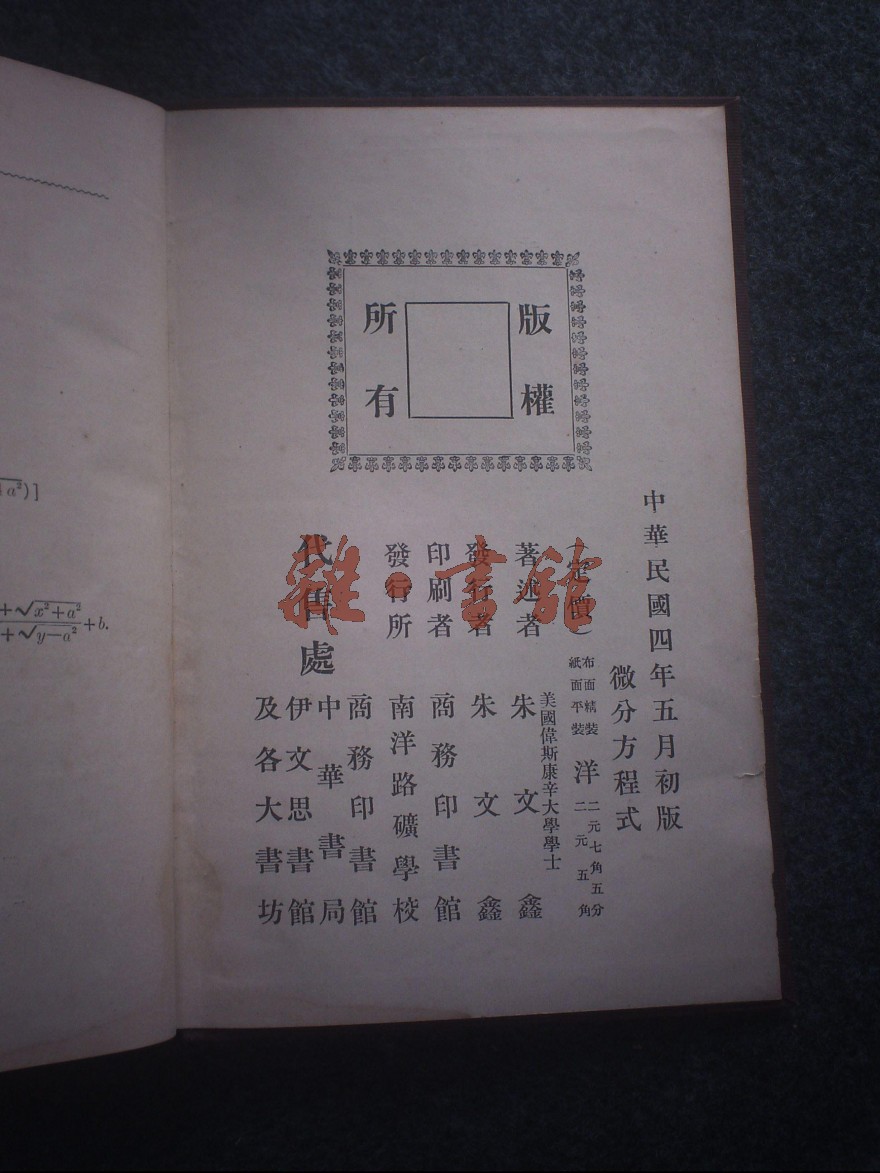 版權
所有
中華民國四年五月初版
微分方程式
(定價)
布面精裝 洋二元七角五分
紙面平裝 洋二元五角
美國偉斯康辛大學學士
著述者 朱文鑫
發行者 朱文鑫
印刷者 商務印書館
發行所 南洋路礦學校
代售處
商務印書館
中華書局
伊文思書館
及各大書坊
雜·書館
a²)]
+√x²+a²
+√y−a² +b.